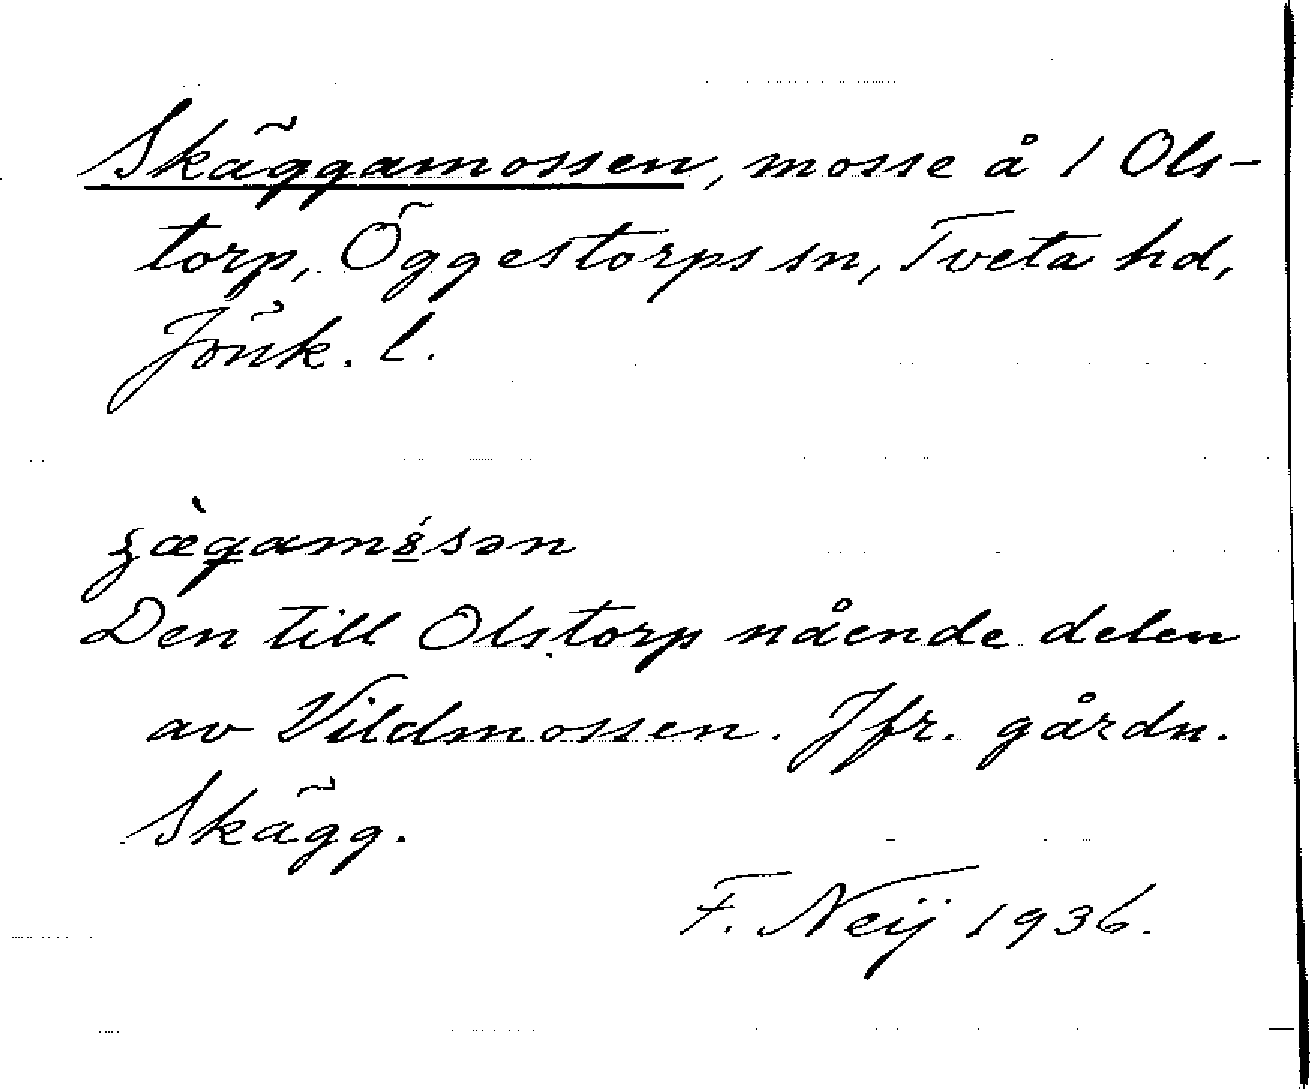 Skäggamossen, mosse å 1 Ols-
torp, Öggestorps sn, Tveta hd,
Jönk. l.
Den till Olstorp nående delen
av Vildmossen. Jfr. gårdn.
Skägg.
F. Neij 1936.